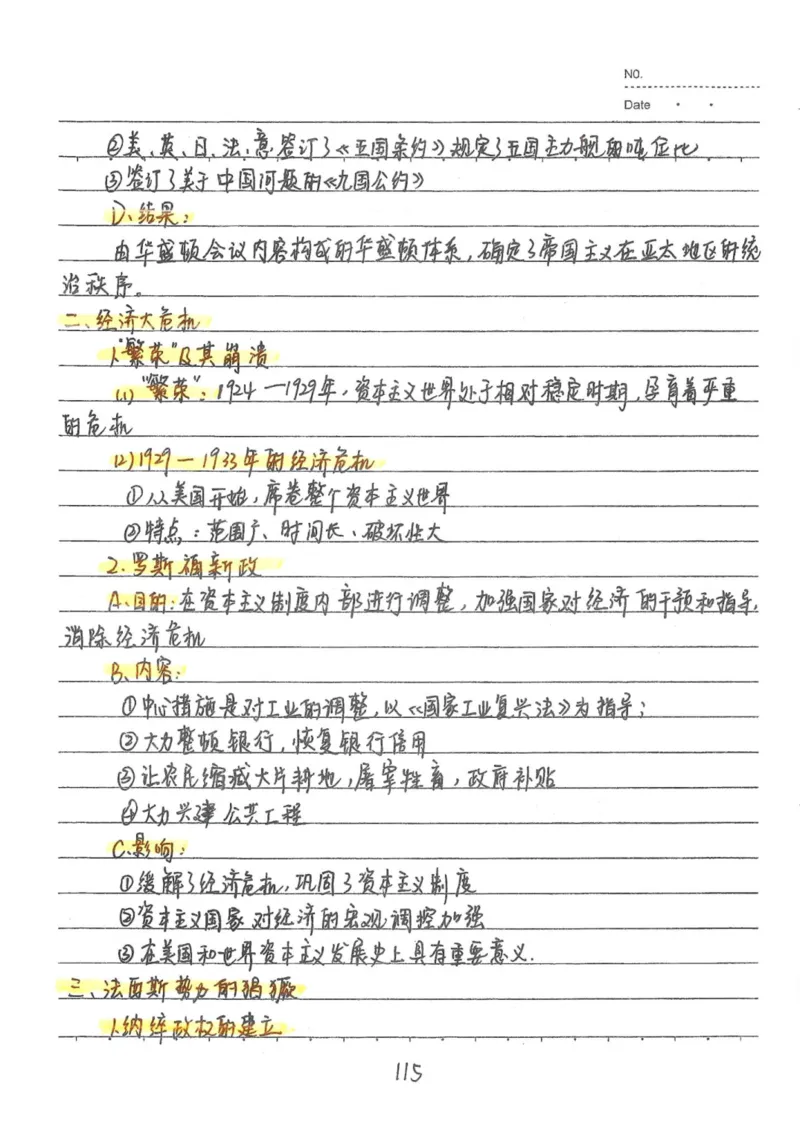 NO.
Date
②美、英、日、法、意签订了《五国条约》规定了五国主力舰的吨位比
③签订了关于中国问题的《九国公约》
D、结果:
由华盛顿会议内容构成的华盛顿体系,确定了帝国主义在亚太地区的统
治秩序。
二、经济大危机
1、"繁荣"及其崩溃
(1)"繁荣":1924—1929年,资本主义世界处于相对稳定时期,孕育着严重
的危机
(2)1929—1933年的经济危机
①从美国开始,席卷整个资本主义世界
②特点:范围广、时间长、破坏性大
2.罗斯福新政
A、目的:在资本主义制度内部进行调整,加强国家对经济的干预和指导,
消除经济危机
B、内容:
①中心措施是对工业的调整,以《国家工业复兴法》为指导;
②大力整顿银行,恢复银行信用
③让农民缩减大片耕地,屠宰牲畜,政府补贴
④大力兴建公共工程
C、影响:
①缓解了经济危机,巩固了资本主义制度
②资本主义国家对经济的宏观调控加强
③在美国和世界资本主义发展史上具有重要意义.
三、法西斯势力的猖獗
1、纳粹政权的建立
115